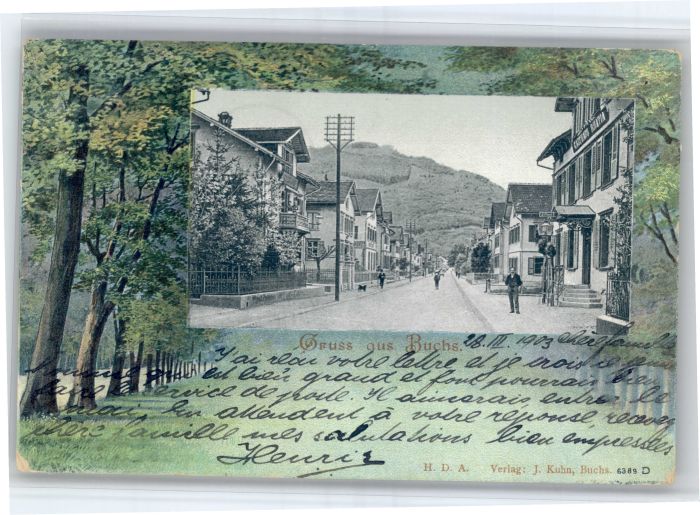 Gruss aus Buchs.
28. III. 1903
J'ai reçu votre lettre et je crois
homme est bien grand et font pourrait bien
faire service de poste Il aimerais entre le
mai. En attendent à votre réponse, recevez
chère famille mes salutations bien empressées
Henri
H. D. A. Verlag: J. Kuhn, Buchs. 6389 D